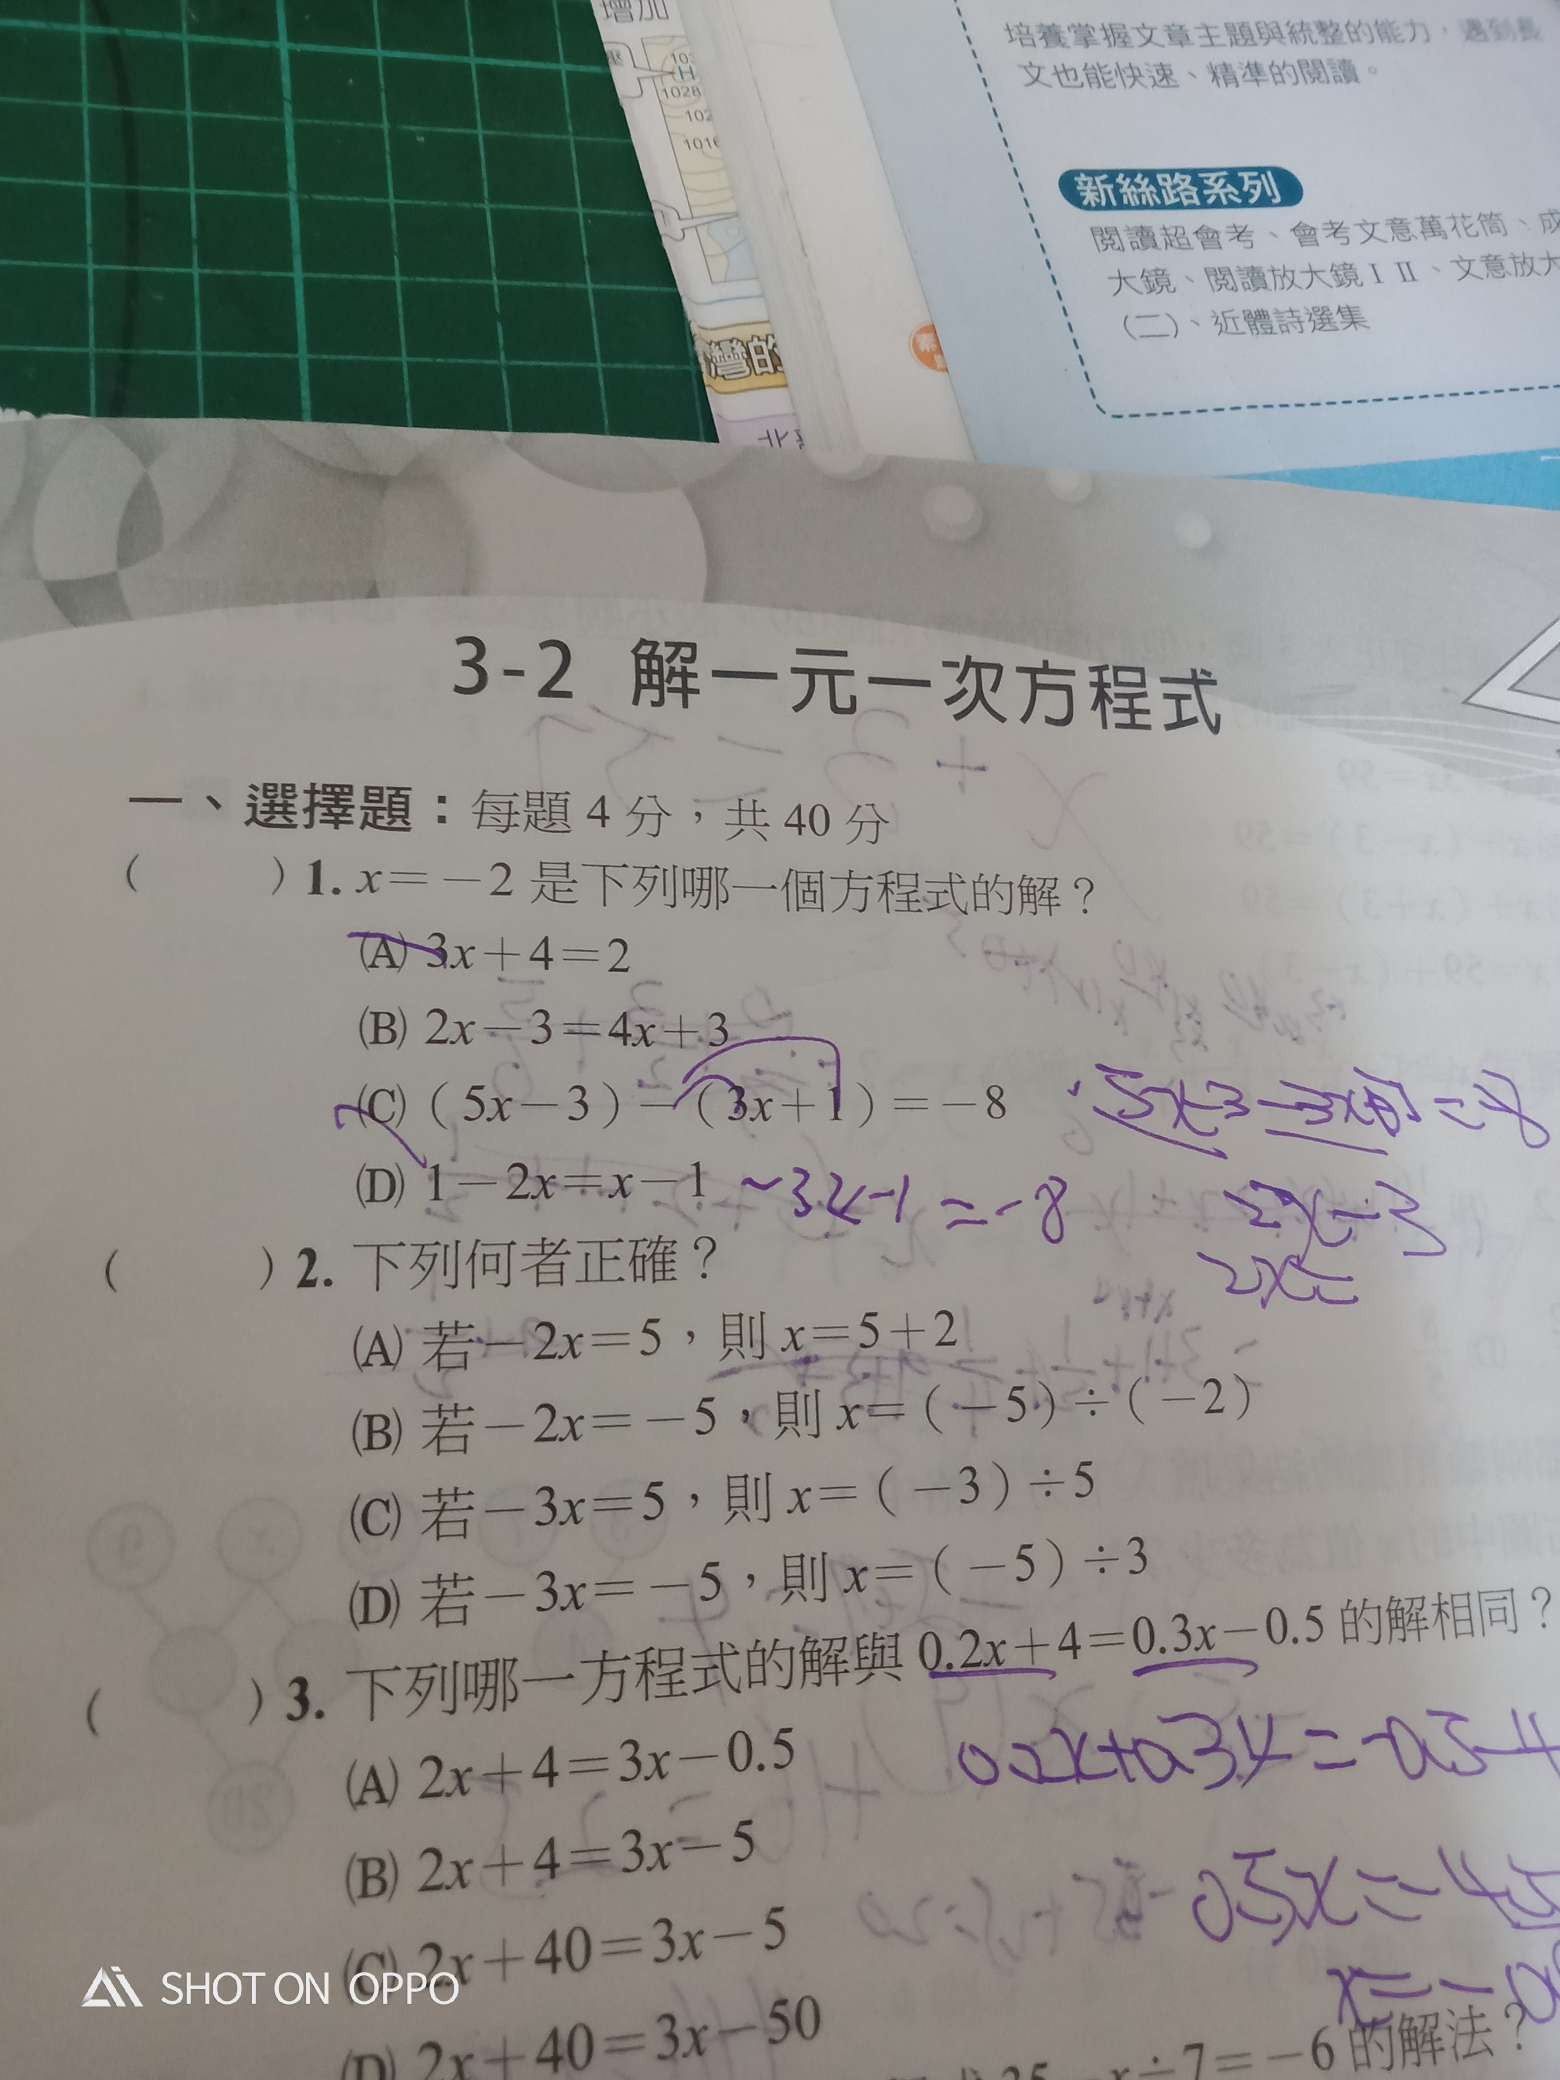 增加
1028
102
1016
灣的
培養掌握文章主題與統整的能力,遇到長
文也能快速、精準的閱讀。
新絲路系列
閱讀超會考、會考文意萬花筒、成
大鏡、閱讀放大鏡ⅠⅡ、文意放大
(二)、近體詩選集
3-2 解一元一次方程式
一、選擇題:每題4分,共40分
( )1. x=-2是下列哪一個方程式的解?
(A) 3x+4=2
(B) 2x-3=4x+3
(C) (5x-3)-(3x+1)=-8
(D) 1-2x=x-1
~3x-1=-8
2x-3
2x=
( )2. 下列何者正確?
(A) 若-2x=5,則x=5+2
(B) 若-2x=-5,則x=(-5)÷(-2)
(C) 若-3x=5,則x=(-3)÷5
(D) 若-3x=-5,則x=(-5)÷3
( )3. 下列哪一方程式的解與0.2x+4=0.3x-0.5的解相同?
(A) 2x+4=3x-0.5
(B) 2x+4=3x-5
(C) 2x+40=3x-5
(D) 2x+40=3x-50
x÷7=-6的解法?
SHOT ON OPPO